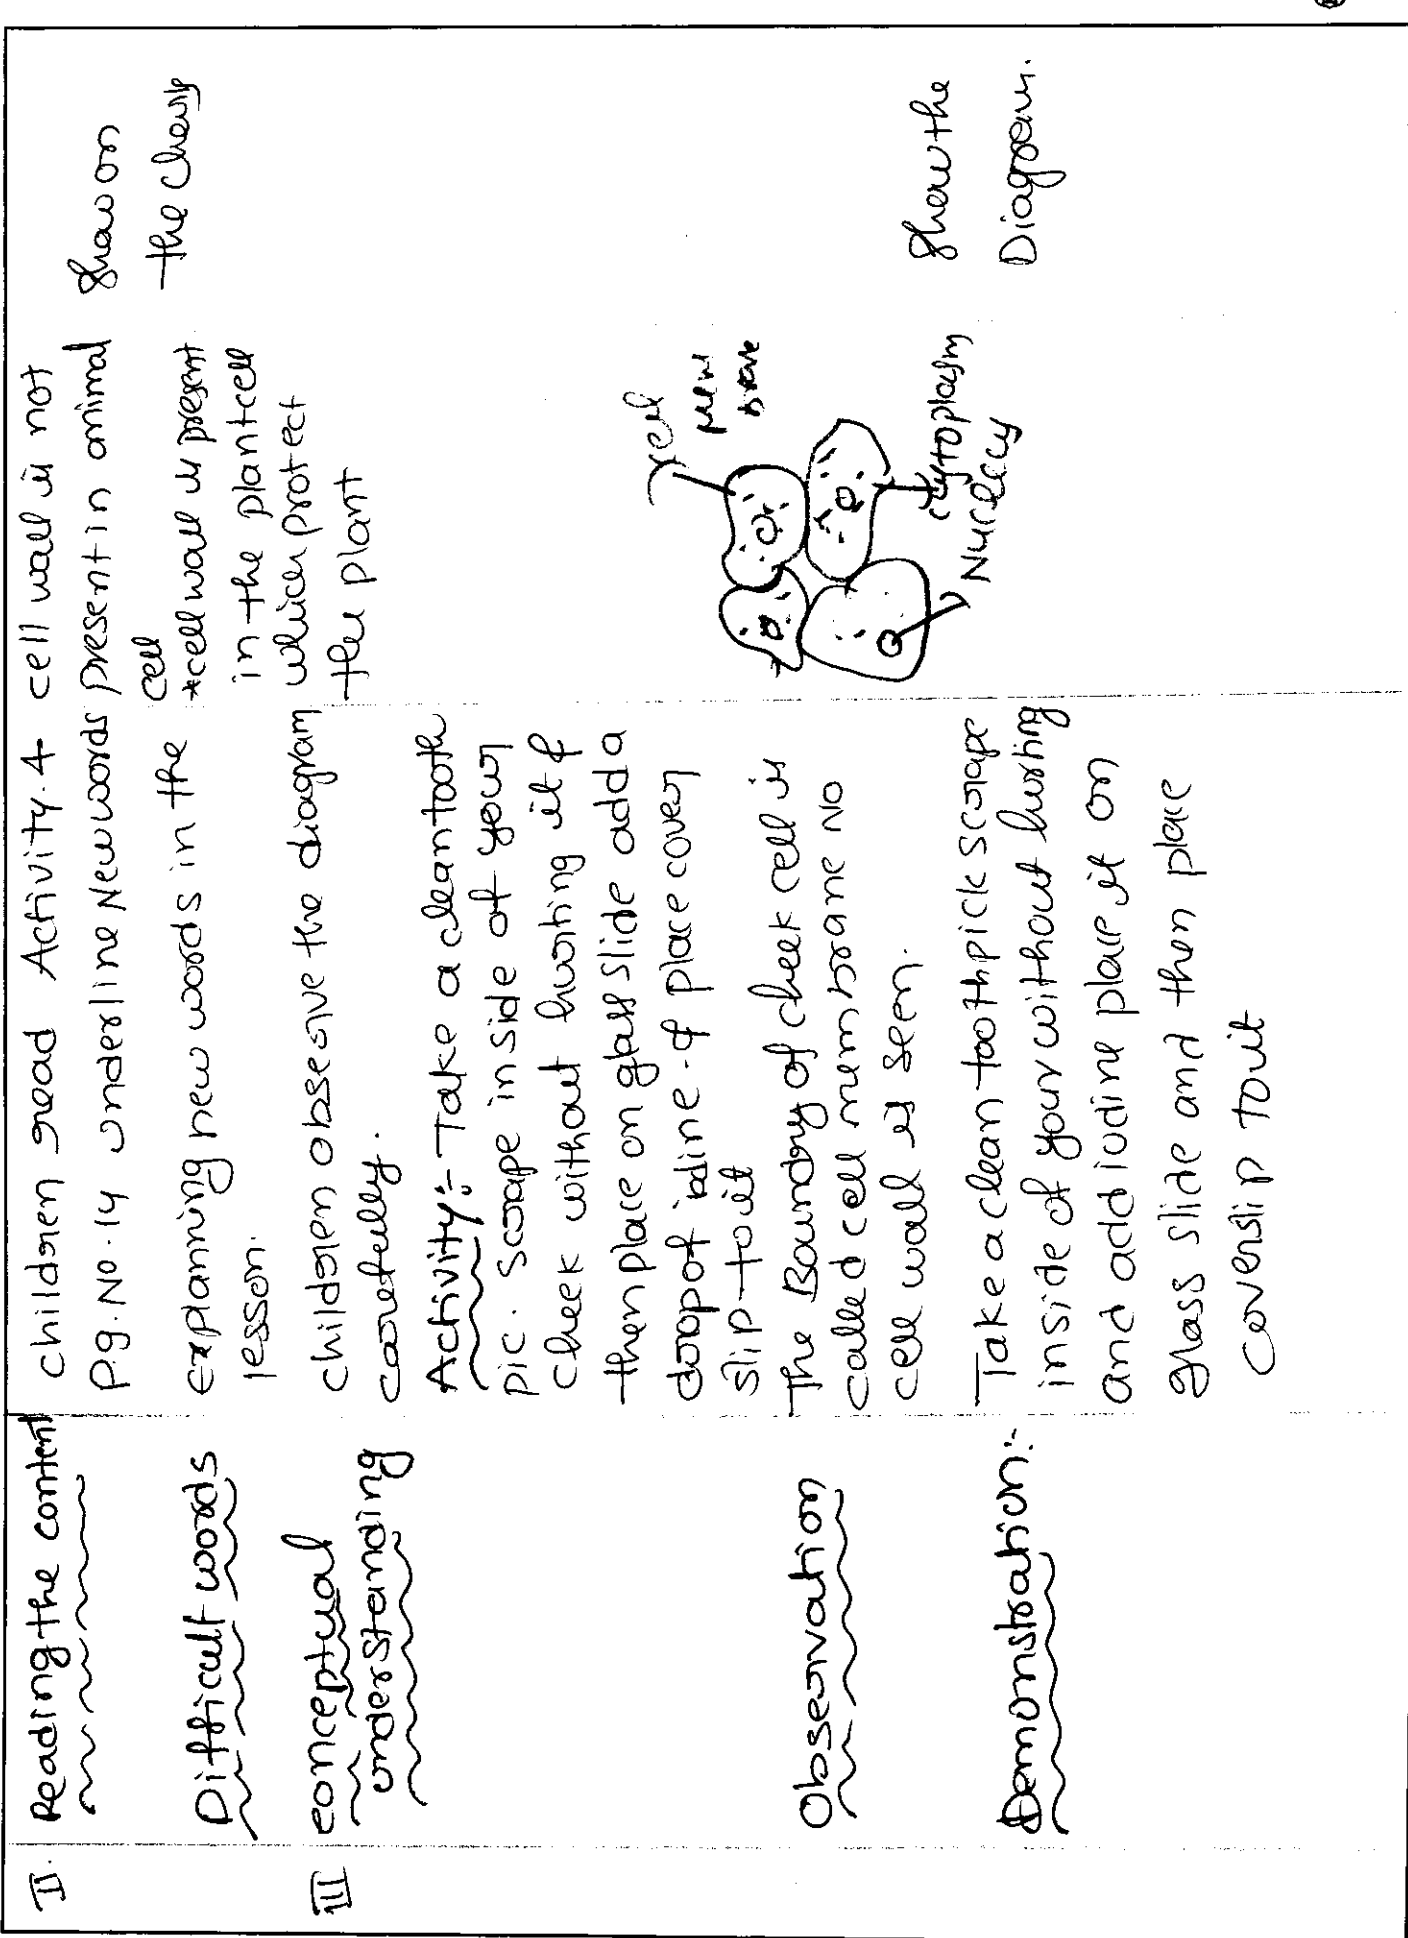 II.
Reading the content
Difficult words
III
conceptual
understanding
Observation
Demonstration:-
children read Activity.4
P.g. No.14 underline New words
explanning new words in the
lesson.
children observe the diagram
carefully.
Activity:- Take a clean tooth
pic. Scrape inside of your
cheek without hurting it &
then place on glass slide add a
drop of idine & place cover
slip to it
The Boundry of cheek cell is
called cell membrane no
cell wall is seen.
Take a clean toothpick scrape
inside of your without hurting
and add iodine place it on
glass slide and then place
coverslip to it
cell wall is not
present in animal
cell
*cell wall is present
in the plant cell
which protect
the plant
cell
mem
brane
cytoplasm
Nucleus
Show on
the
Show the
Diagram.